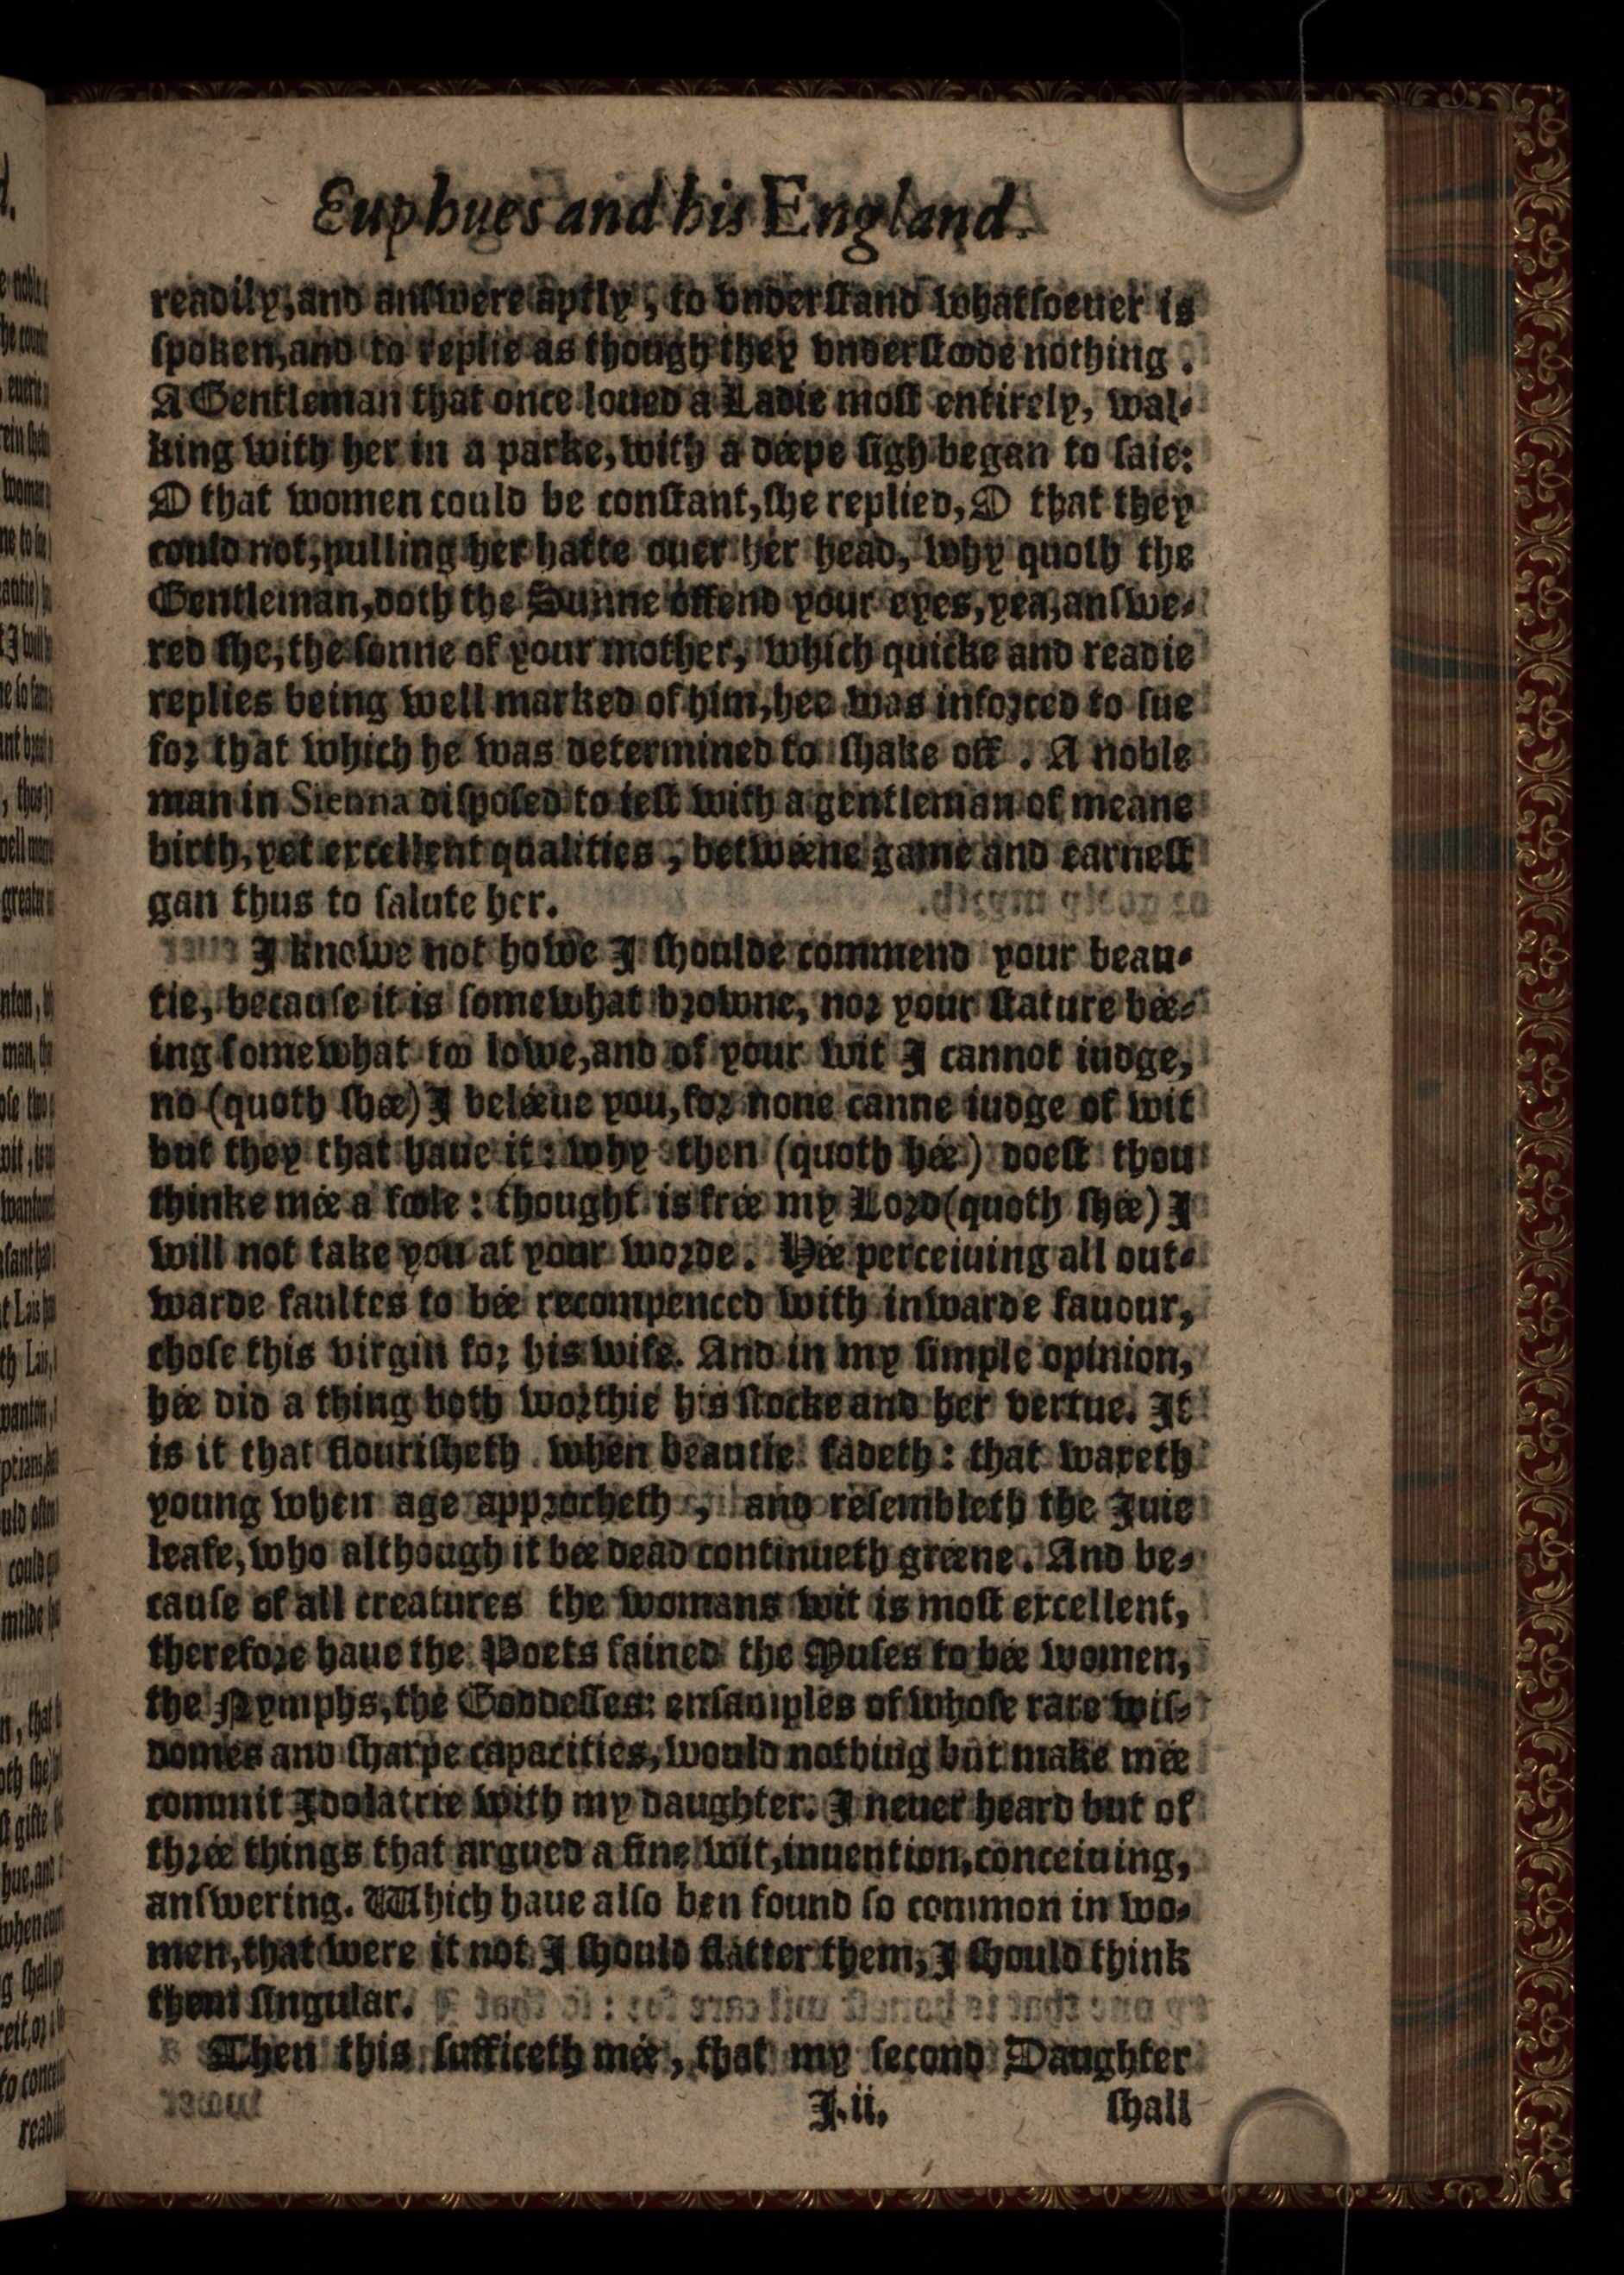 Euphues and his England.
readily, and anſwere aptly, to vnderſtand whatſoeuer is
ſpoken, and to replie as though they vnderſtoode nothing.
A Gentleman that once loued a Ladie moſt entirely, wal-
king with her in a parke, with a déepe ſigh began to ſaie:
O that women could be conſtant, ſhe replied, O that they
could not, pulling her hatte ouer her head, why quoth the
Gentleman, doth the Sunne offend your eyes, yea, anſwe-
red ſhe, the ſonne of your mother, which quicke and readie
replies being well marked of him, hee was inforced to ſue
for that which he was determined to ſhake off. A noble
man in Sienna diſpoſed to ieſt with a gentleman of meane
birth, yet excellent qualities, betwéene game and earneſt
gan thus to ſalute her.
I knowe not howe I ſhoulde commend your beau-
tie, becauſe it is ſomewhat browne, nor your ſtature bée-
ing ſomewhat too lowe, and of your wit I cannot iudge,
no (quoth ſhée) I beléeue you, for none canne iudge of wit
but they that haue it: why then (quoth hée) doeſt thou
thinke mée a foole: thought is frée my Lord (quoth ſhée) I
will not take you at your worde. Hée perceiuing all out-
warde faultes to bée recompenced with inwarde fauour,
choſe this virgin for his wife. And in my ſimple opinion,
hée did a thing both worthie his ſtocke and her vertue. It
is it that flouriſheth when beautie fadeth: that waxeth
young when age approcheth, and reſembleth the Iuie
leafe, who although it bée dead continueth gréene. And be-
cauſe of all creatures the womans wit is moſt excellent,
therefore haue the Poets fained the Muſes to bée women,
the Nymphs, the Goddeſſes: enſamples of whoſe rare wiſ-
domes and ſharpe capacities, would nothing but make mée
commit Idolatrie with my daughter. I neuer heard but of
thrée things that argued a fine wit, inuention, conceiuing,
anſwering. Which haue alſo ben found ſo common in wo-
men, that were it not I ſhould flatter them, I ſhould think
them ſingular.
Then this ſufficeth mée, that my ſecond Daughter
I.ii. ſhall